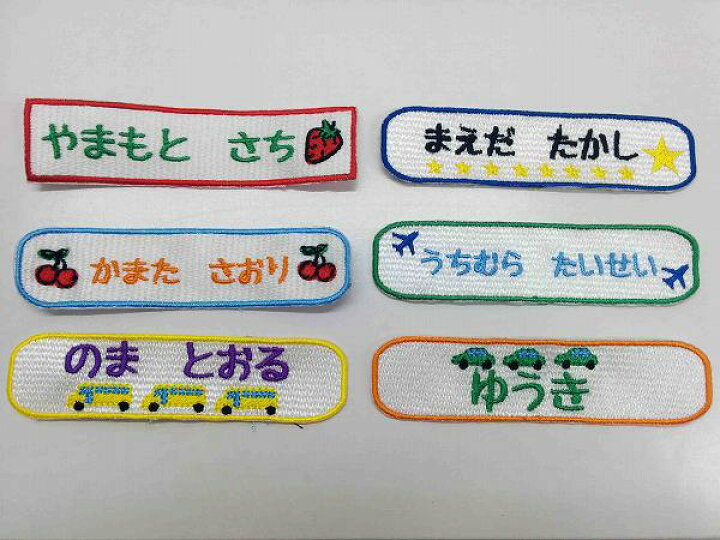 やまもと さち
まえだ たかし
かまた さおり
うちむら たいせい
のま とおる
ゆうき